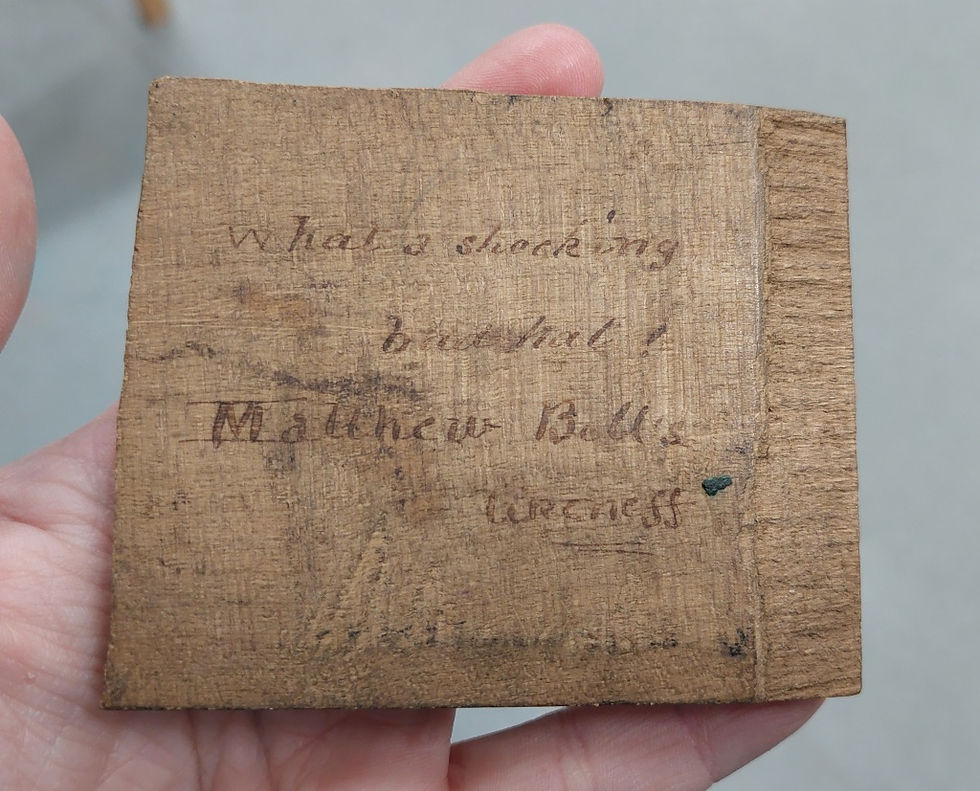 What a shocking
bad hat!
Matthew Bell's
likeness